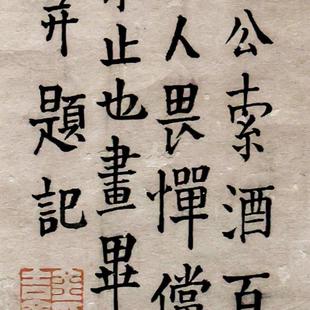 公索酒百
人畏憚儻
止也畫畢
并題記